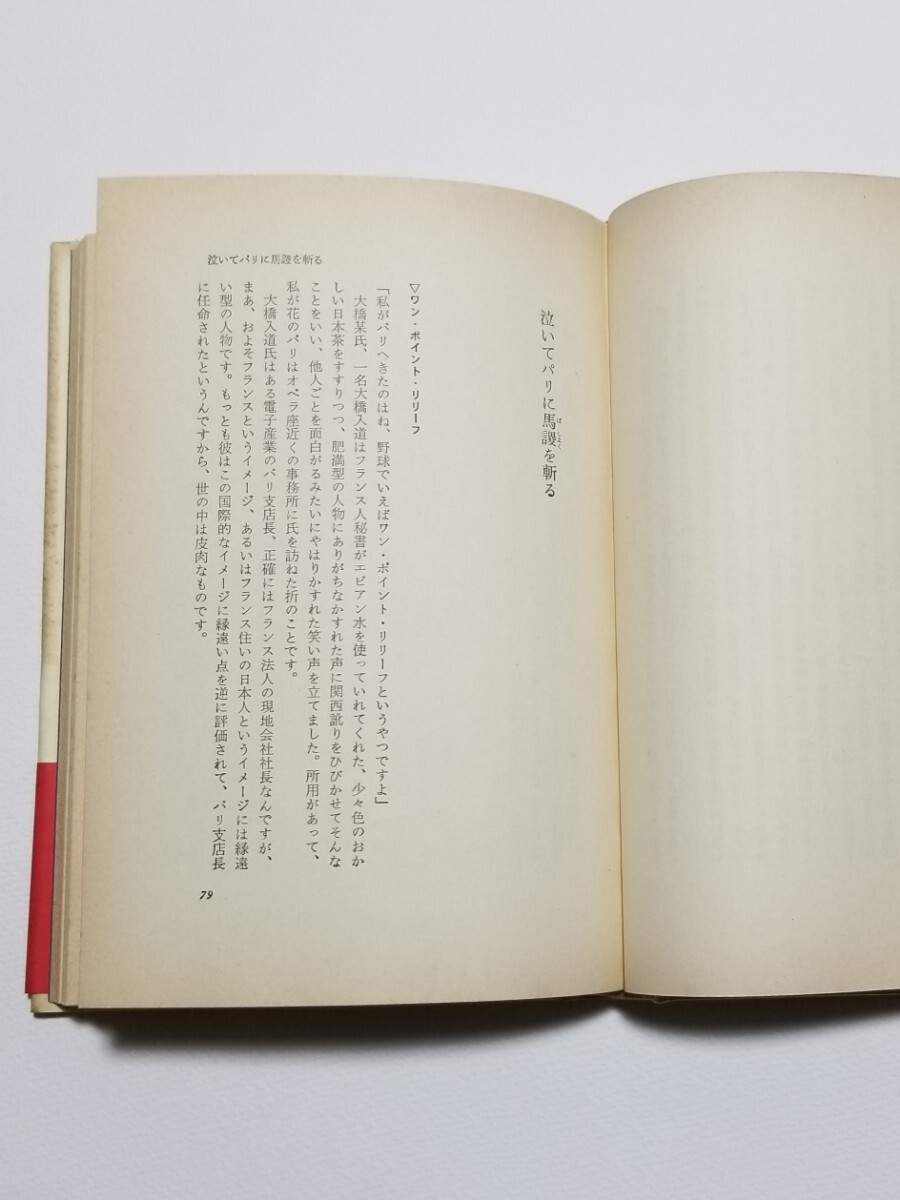 泣いてパリに馬謖を斬る
泣いてパリに馬謖を斬る
ばしよく
▽ワン・ポイント・リリーフ
「私がパリへきたのはね、野球でいえばワン・ポイント・リリーフというやつですよ」
大橋某氏、一名大橋入道はフランス人秘書がエビアン水を使っていれてくれた、少々色のおか
しい日本茶をすすりつつ、肥満型の人物にありがちなかすれた声に関西訛りをひびかせてそんな
ことをいい、他人ごとを面白がるみたいにやはりかすれた笑い声を立てました。所用があって、
私が花のパリはオペラ座近くの事務所に氏を訪ねた折のことです。
大橋入道氏はある電子産業のパリ支店長、正確にはフランス法人の現地会社社長なんですが、
まあ、およそフランスというイメージ、あるいはフランス住いの日本人というイメージには縁遠
い型の人物です。もっとも彼はこの国際的なイメージに縁遠い点を逆に評価されて、パリ支店長
に任命されたというんですから、世の中は皮肉なものです。
79